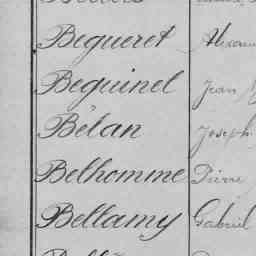 Begueret
Beguinel Jean
Bélan Joseph
Belhomme Pierre
Bellamy Gabriel